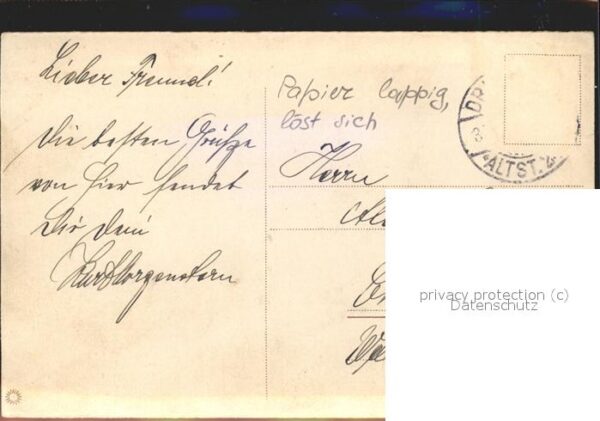 Lieber Freund!
Die besten Grüße
von hier sendet
Dir Dein
Kurt Morgenstern
Papier lappig,
löst sich
Herrn
ALTST.
privacy protection (c)
Datenschutz